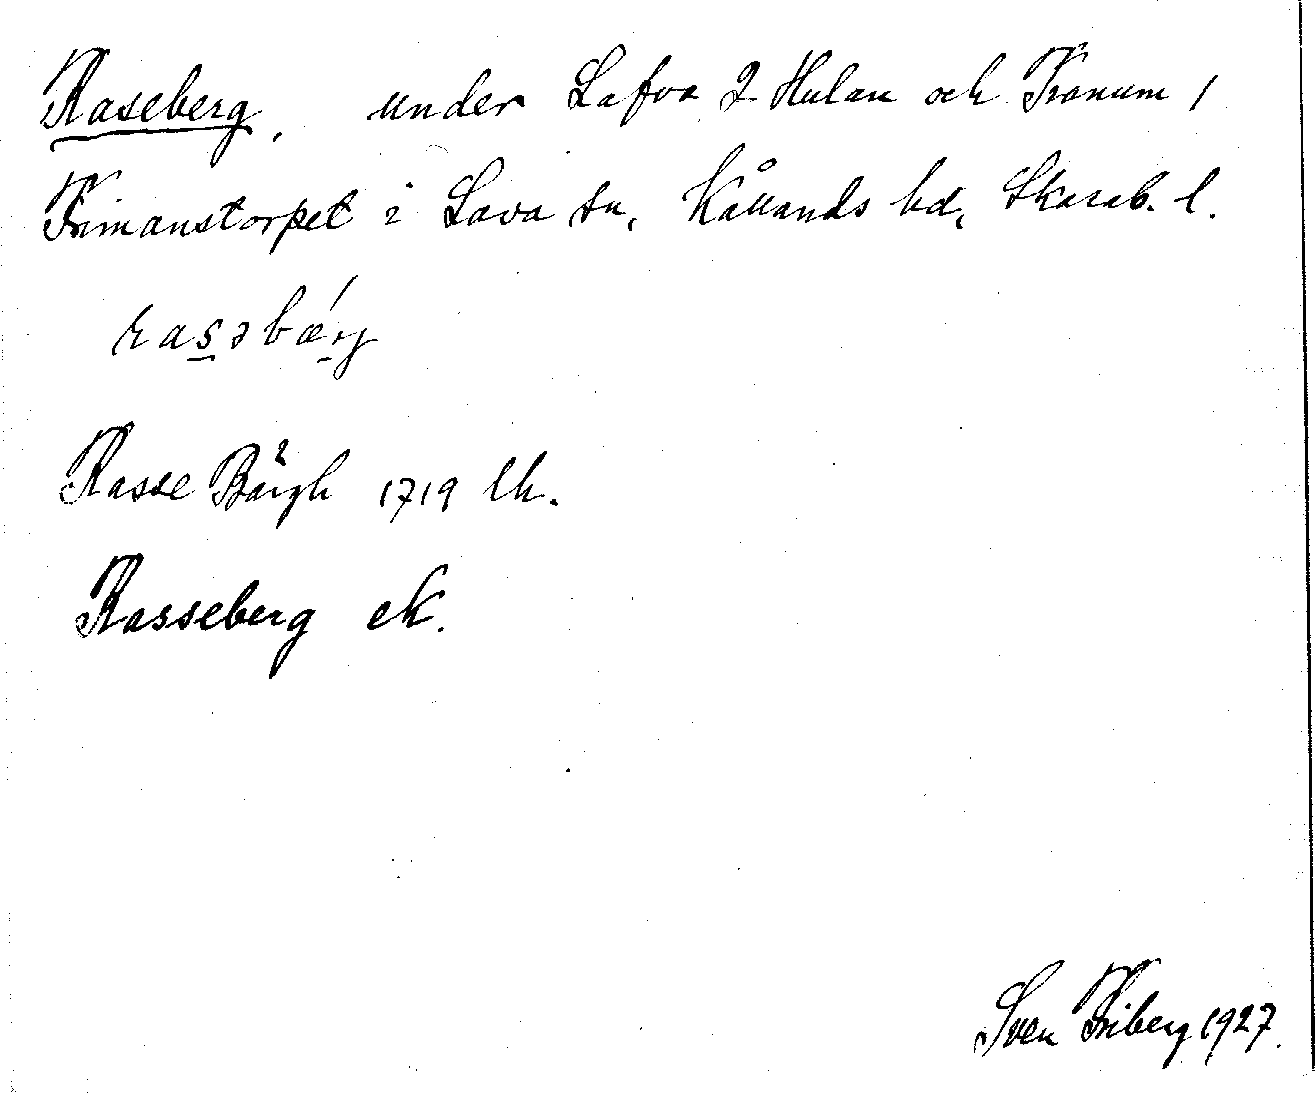 Raseberg, under Lafva 2 Hulan och Tranum 1
Frimanstorpet i Lava sn, Kållands hd, Skarab. l.
rasəbærj
Rasse Bärgh 1719 lh.
Rasseberg ek.
Sven Friberg 1927.